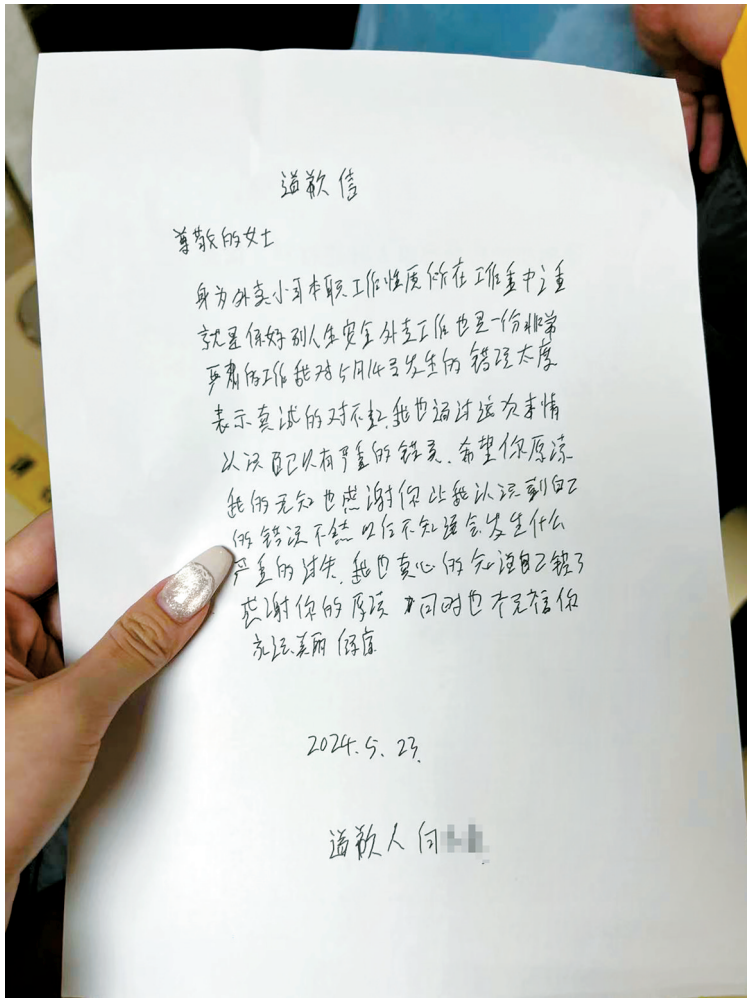 道歉信
尊敬的女士
身为外卖小哥本职工作性质所在工作重中之重
就是保好别人生安全外卖工作也是一份非常
严肃的工作我对5月14号发生的错误太度
表示真诚的对不起,我也通过这次事情
认识自己以有严重的错误.希望你原谅
我的无知也感谢你让我认识到自己
的错误不然以后不知道会发生什么
严重的过失.我也真心的知道自己错了
感谢你的原谅 同时也祝福你
永远美丽健康
2024.5.23.
道歉人 向